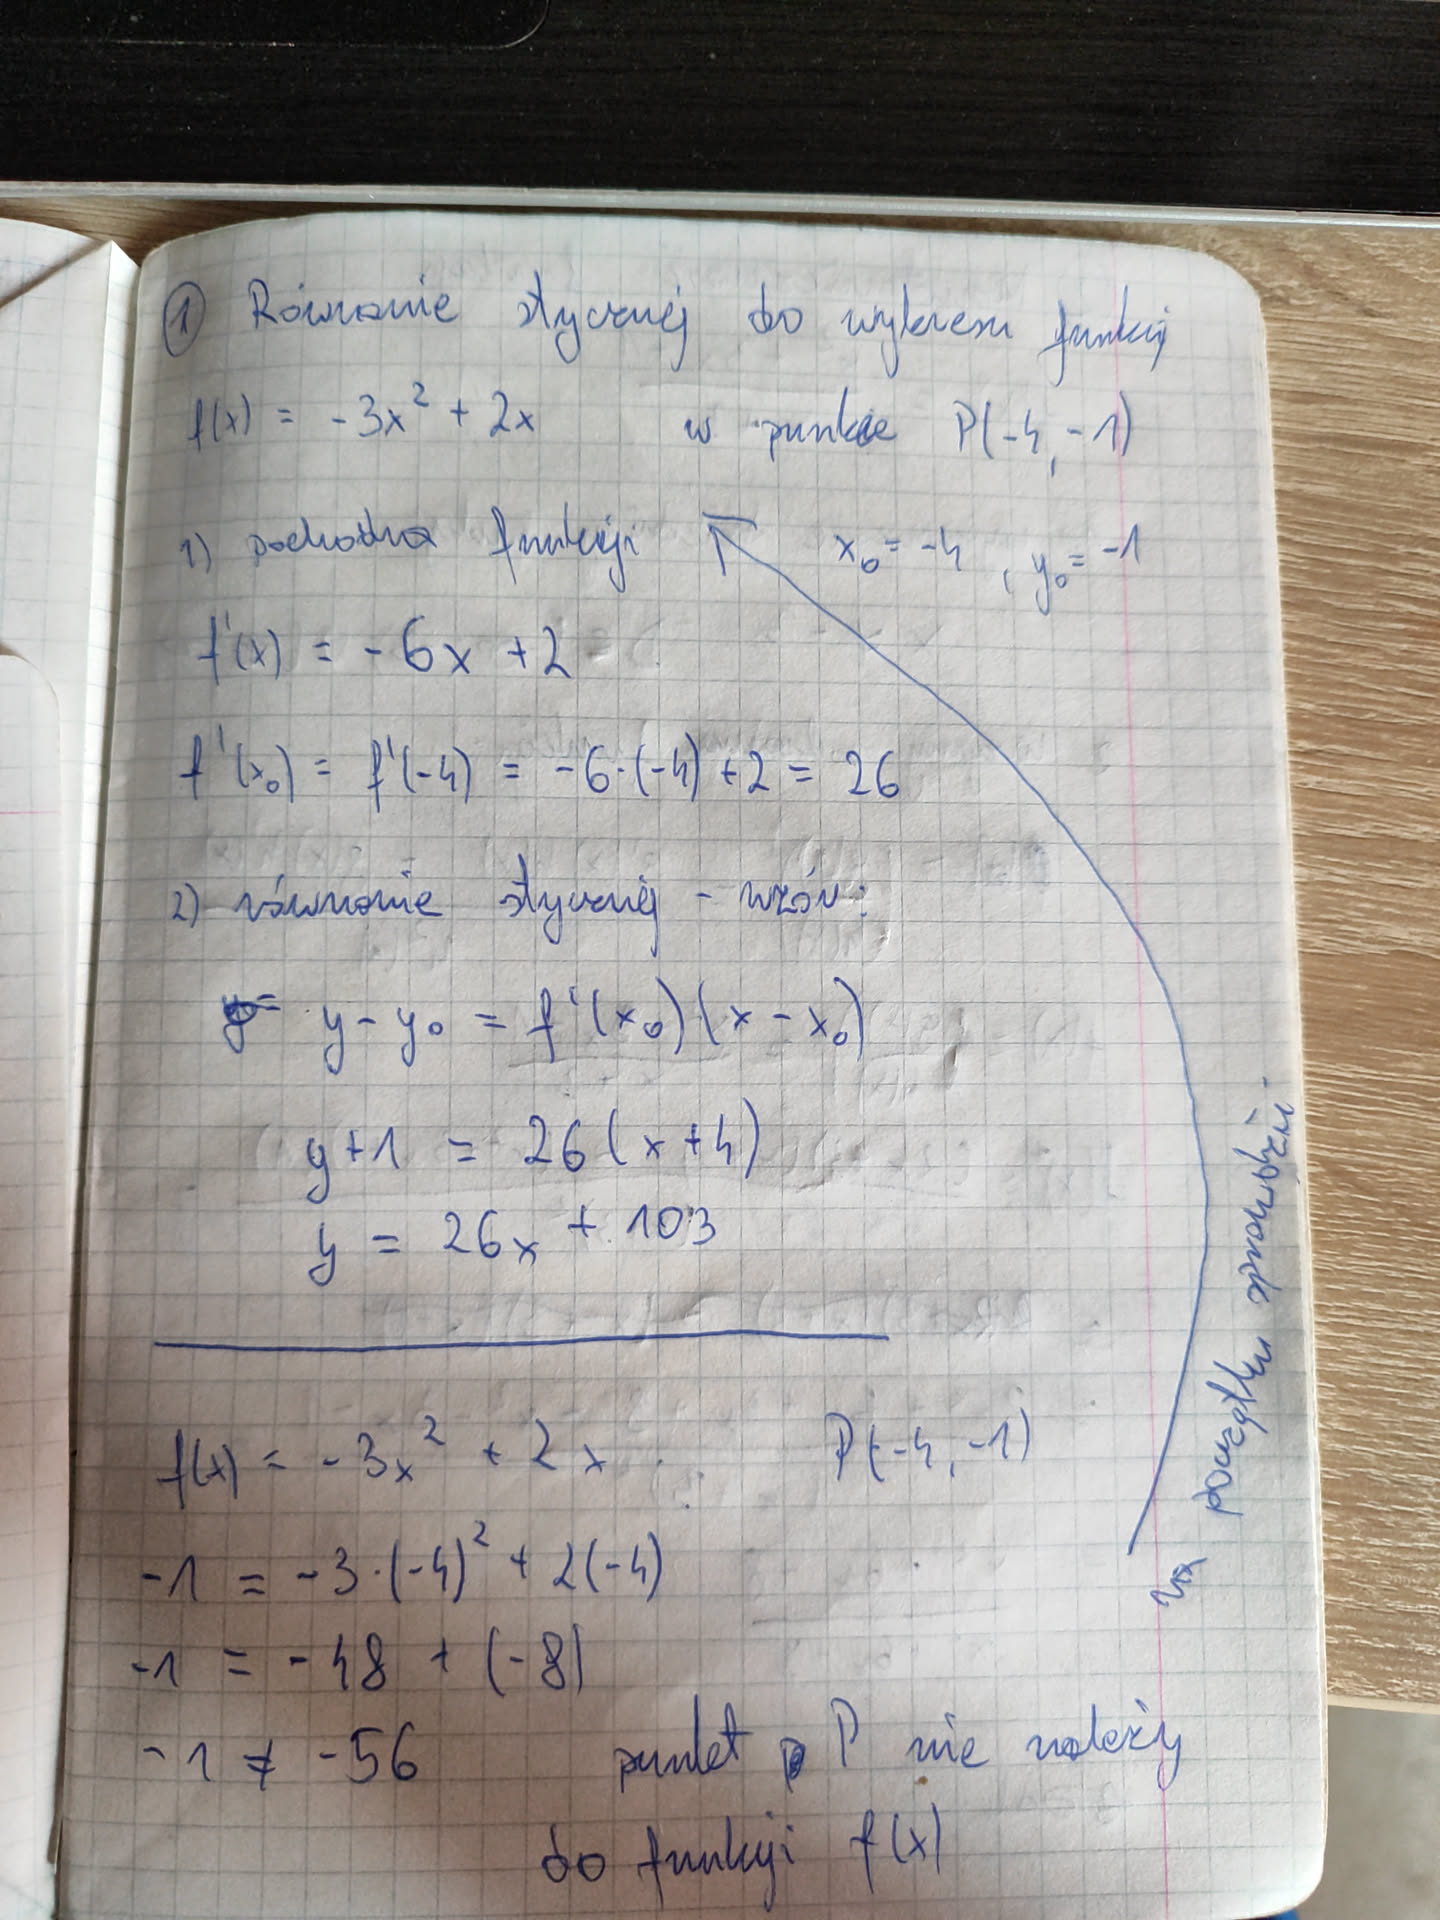 ① Równanie stycznej do wykresu funkcji
f(x) = -3x² + 2x w punkcie P(-4, -1)
1) pochodna funkcji x₀ = -4 , y₀ = -1
f'(x) = -6x + 2
f'(x₀) = f'(-4) = -6·(-4) + 2 = 26
2) równanie stycznej - wzór:
y - y₀ = f'(x₀)(x - x₀)
y + 1 = 26(x + 4)
y = 26x + 103
f(x) = -3x² + 2x P(-4, -1)
-1 = -3·(-4)² + 2(-4)
-1 = -48 + (-8)
-1 ≠ -56 punkt P nie należy
do funkcji f(x)
na początku sprawdzam